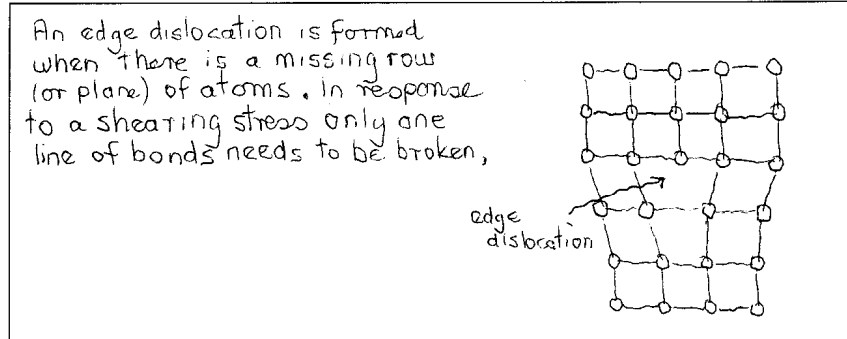 An edge dislocation is formed
when there is a missing row
(or plane) of atoms. In response
to a shearing stress only one
line of bonds needs to be broken,
edge
dislocation